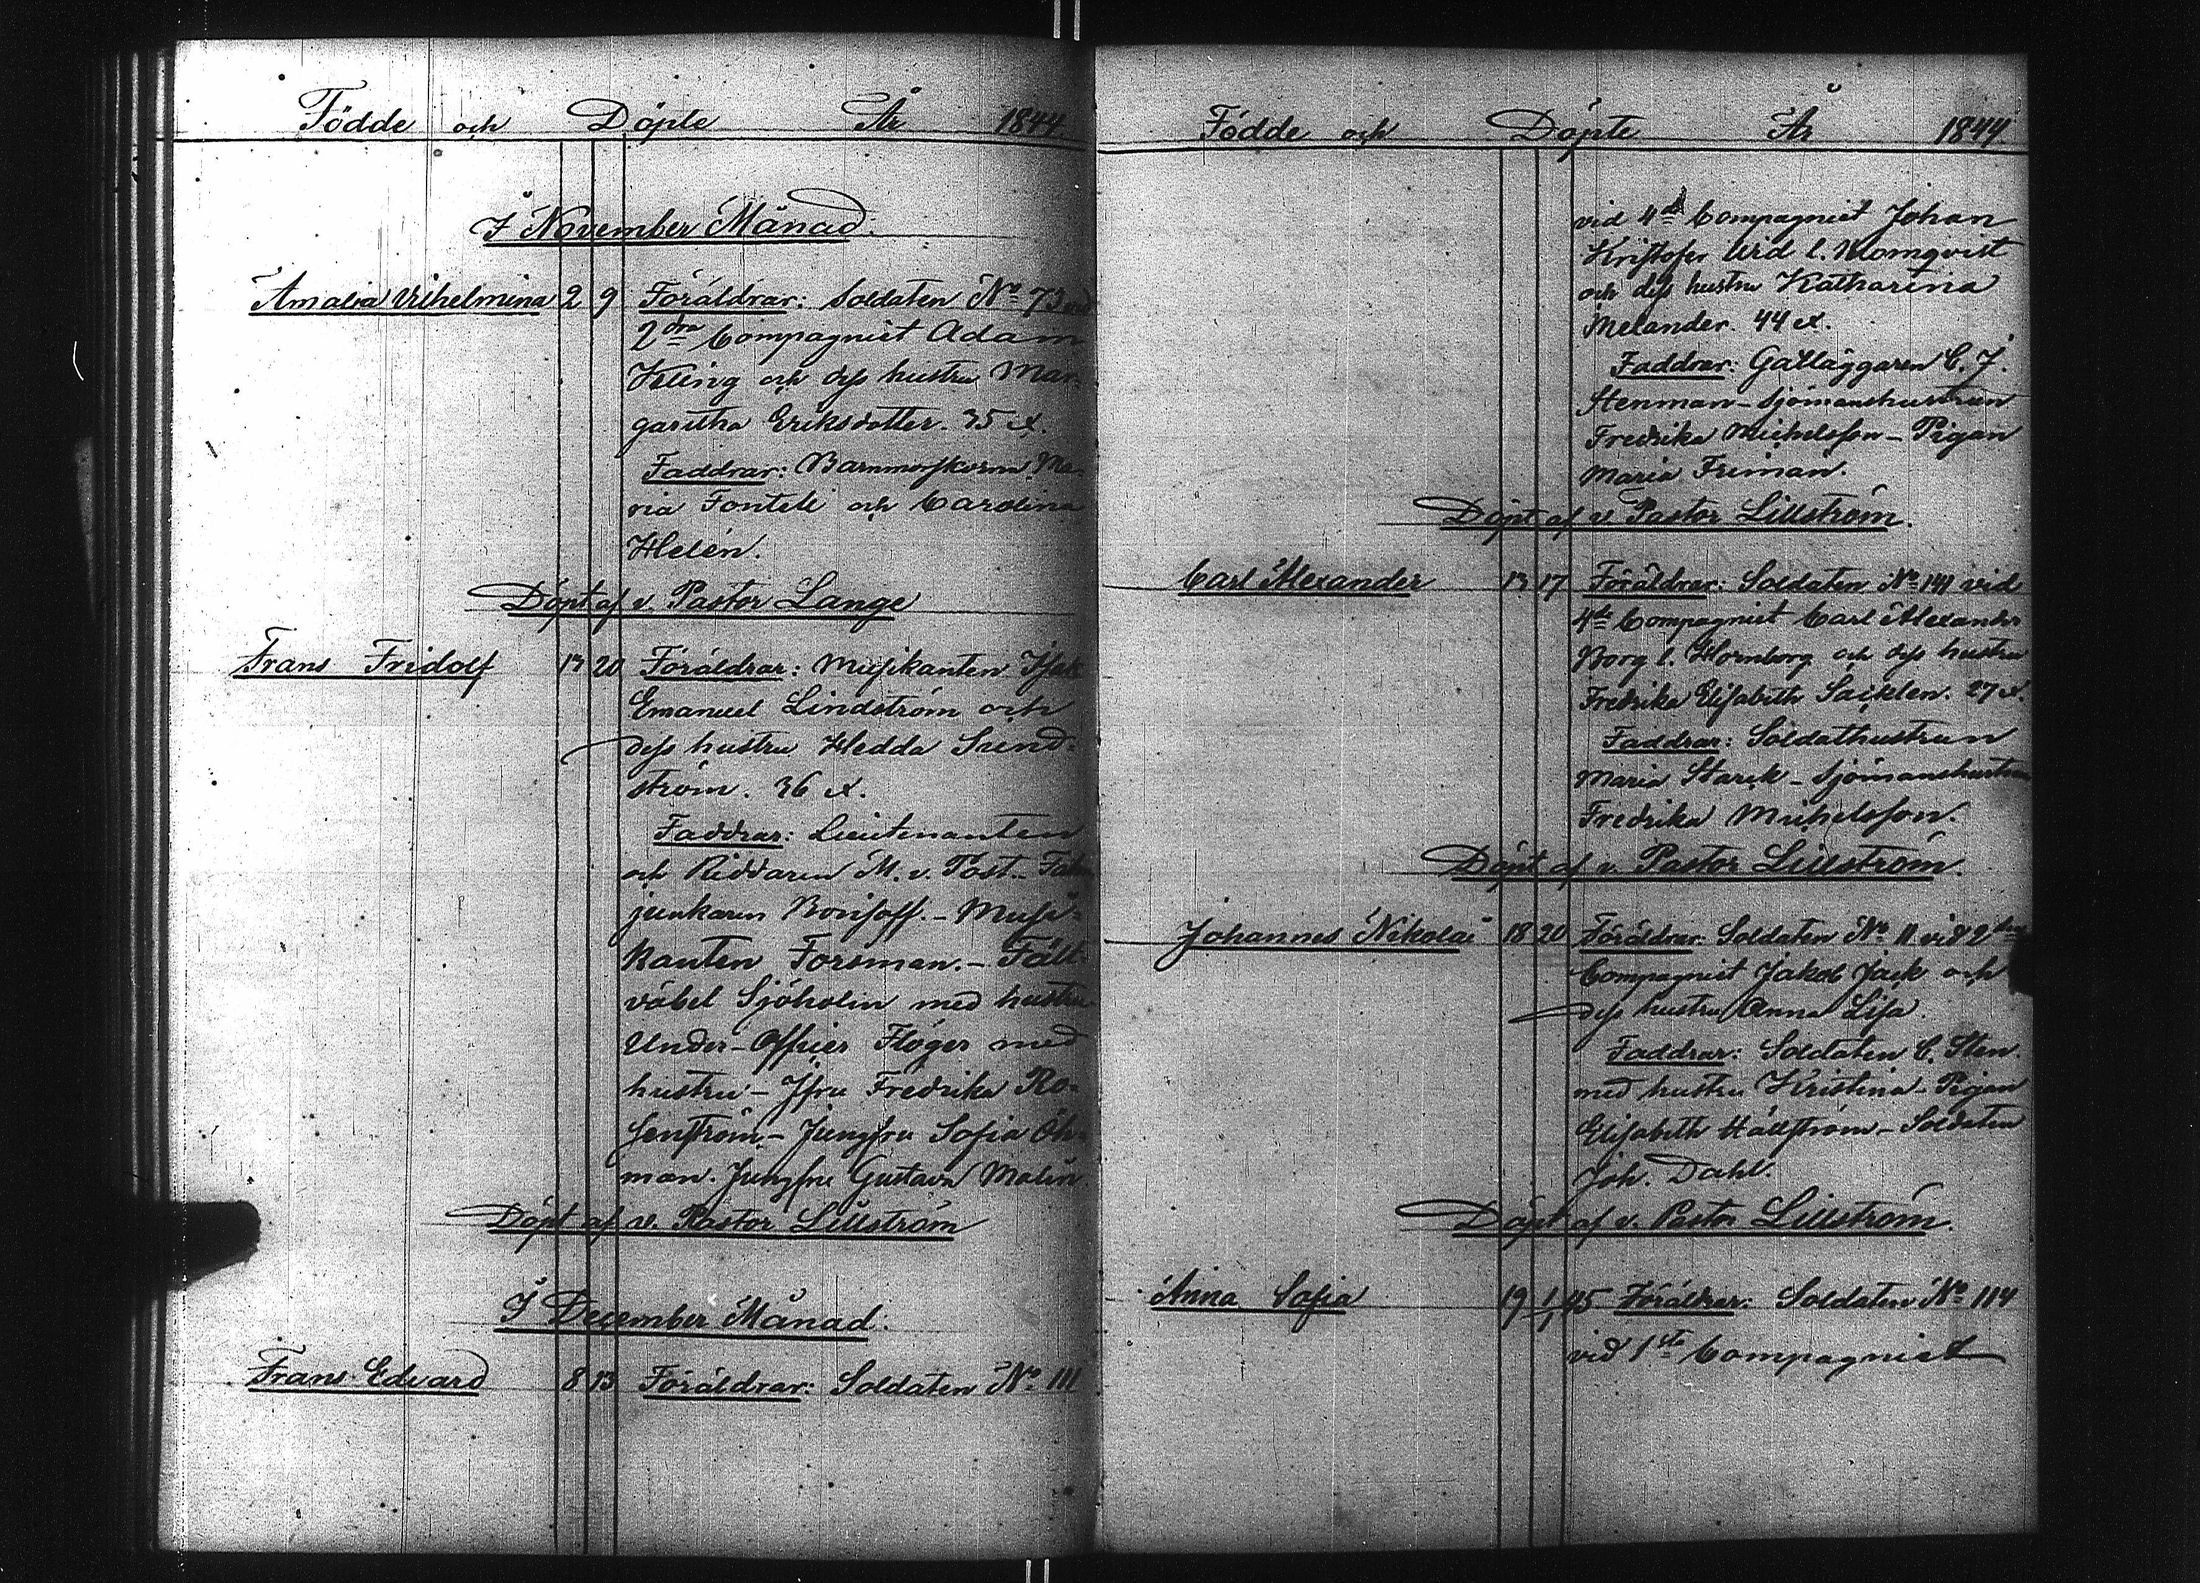 Födde och Döpte År 1844
I November Månad.
Amalia Vilhelmina 2 9 Föräldrar: Soldaten No 73 vid
2dra Compagniet Adam
Kling och dess hustru Mar-
garetha Eriksdotter. 35 år.
Faddrar: Barnmorskorna Ma-
ria Fontell och Carolina
Helén.
Döpt af v. Pastor Lange
Frans Fridolf 13 20 Föräldrar: Musikanten Isak
Emanuel Lindström och
dess hustru Hedda Sund-
ström. 36 år.
Faddrar: Lieutenanten
och Riddaren M. v. Post. - Fan-
junkaren Borisoff. - Musi-
kanten Forsman. - Fält-
väbel Sjöholm med hustru
Under-Officer Höger med
hustru - Jfru Fredrika Ro-
senström - Jungfru Sofia Öh-
man. Jungfru Gustava Malin
Döpt af v. Pastor Lillström
I December Månad.
Frans Edvard 8 13 Föräldrar: Soldaten No 111
Födde och Döpte År 1844
vid 4de Compagniet Johan
Kristofer Urd l. Blomqvist
och dess hustru Katharina
Melander. 44 år.
Faddrar: Gatläggaren C. J.
Stenman - Sjömanshustrun
Fredrika Michelsson - Pigan
Maria Friman.
Döpt af v. Pastor Lillström.
Carl Alexander 13 17 Föräldrar: Soldaten No 141 vid
4de Compagniet Carl Alexander
Borg l. Hornborg och dess hustru
Fredrika Elisabeth Sacklen. 27 år.
Faddrar: Soldathustrun
Maria Starck - Sjömanshustrun
Fredrika Michelsson.
Döpt af v. Pastor Lillström.
Johannes Nikolai 18 20 Föräldrar: Soldaten No 11 vid 2dra
Compagniet Jakob Jack och
dess hustru Anna Lisa.
Faddrar: Soldaten C. Sten.
med hustru Kristina - Pigan
Elisabeth Hällström - Soldaten
Joh. Dahl.
Döpt af v. Pastor Lillström.
Anna Sofia 19 1/1 45 Föräldrar: Soldaten No 114
vid 1sta Compagniet